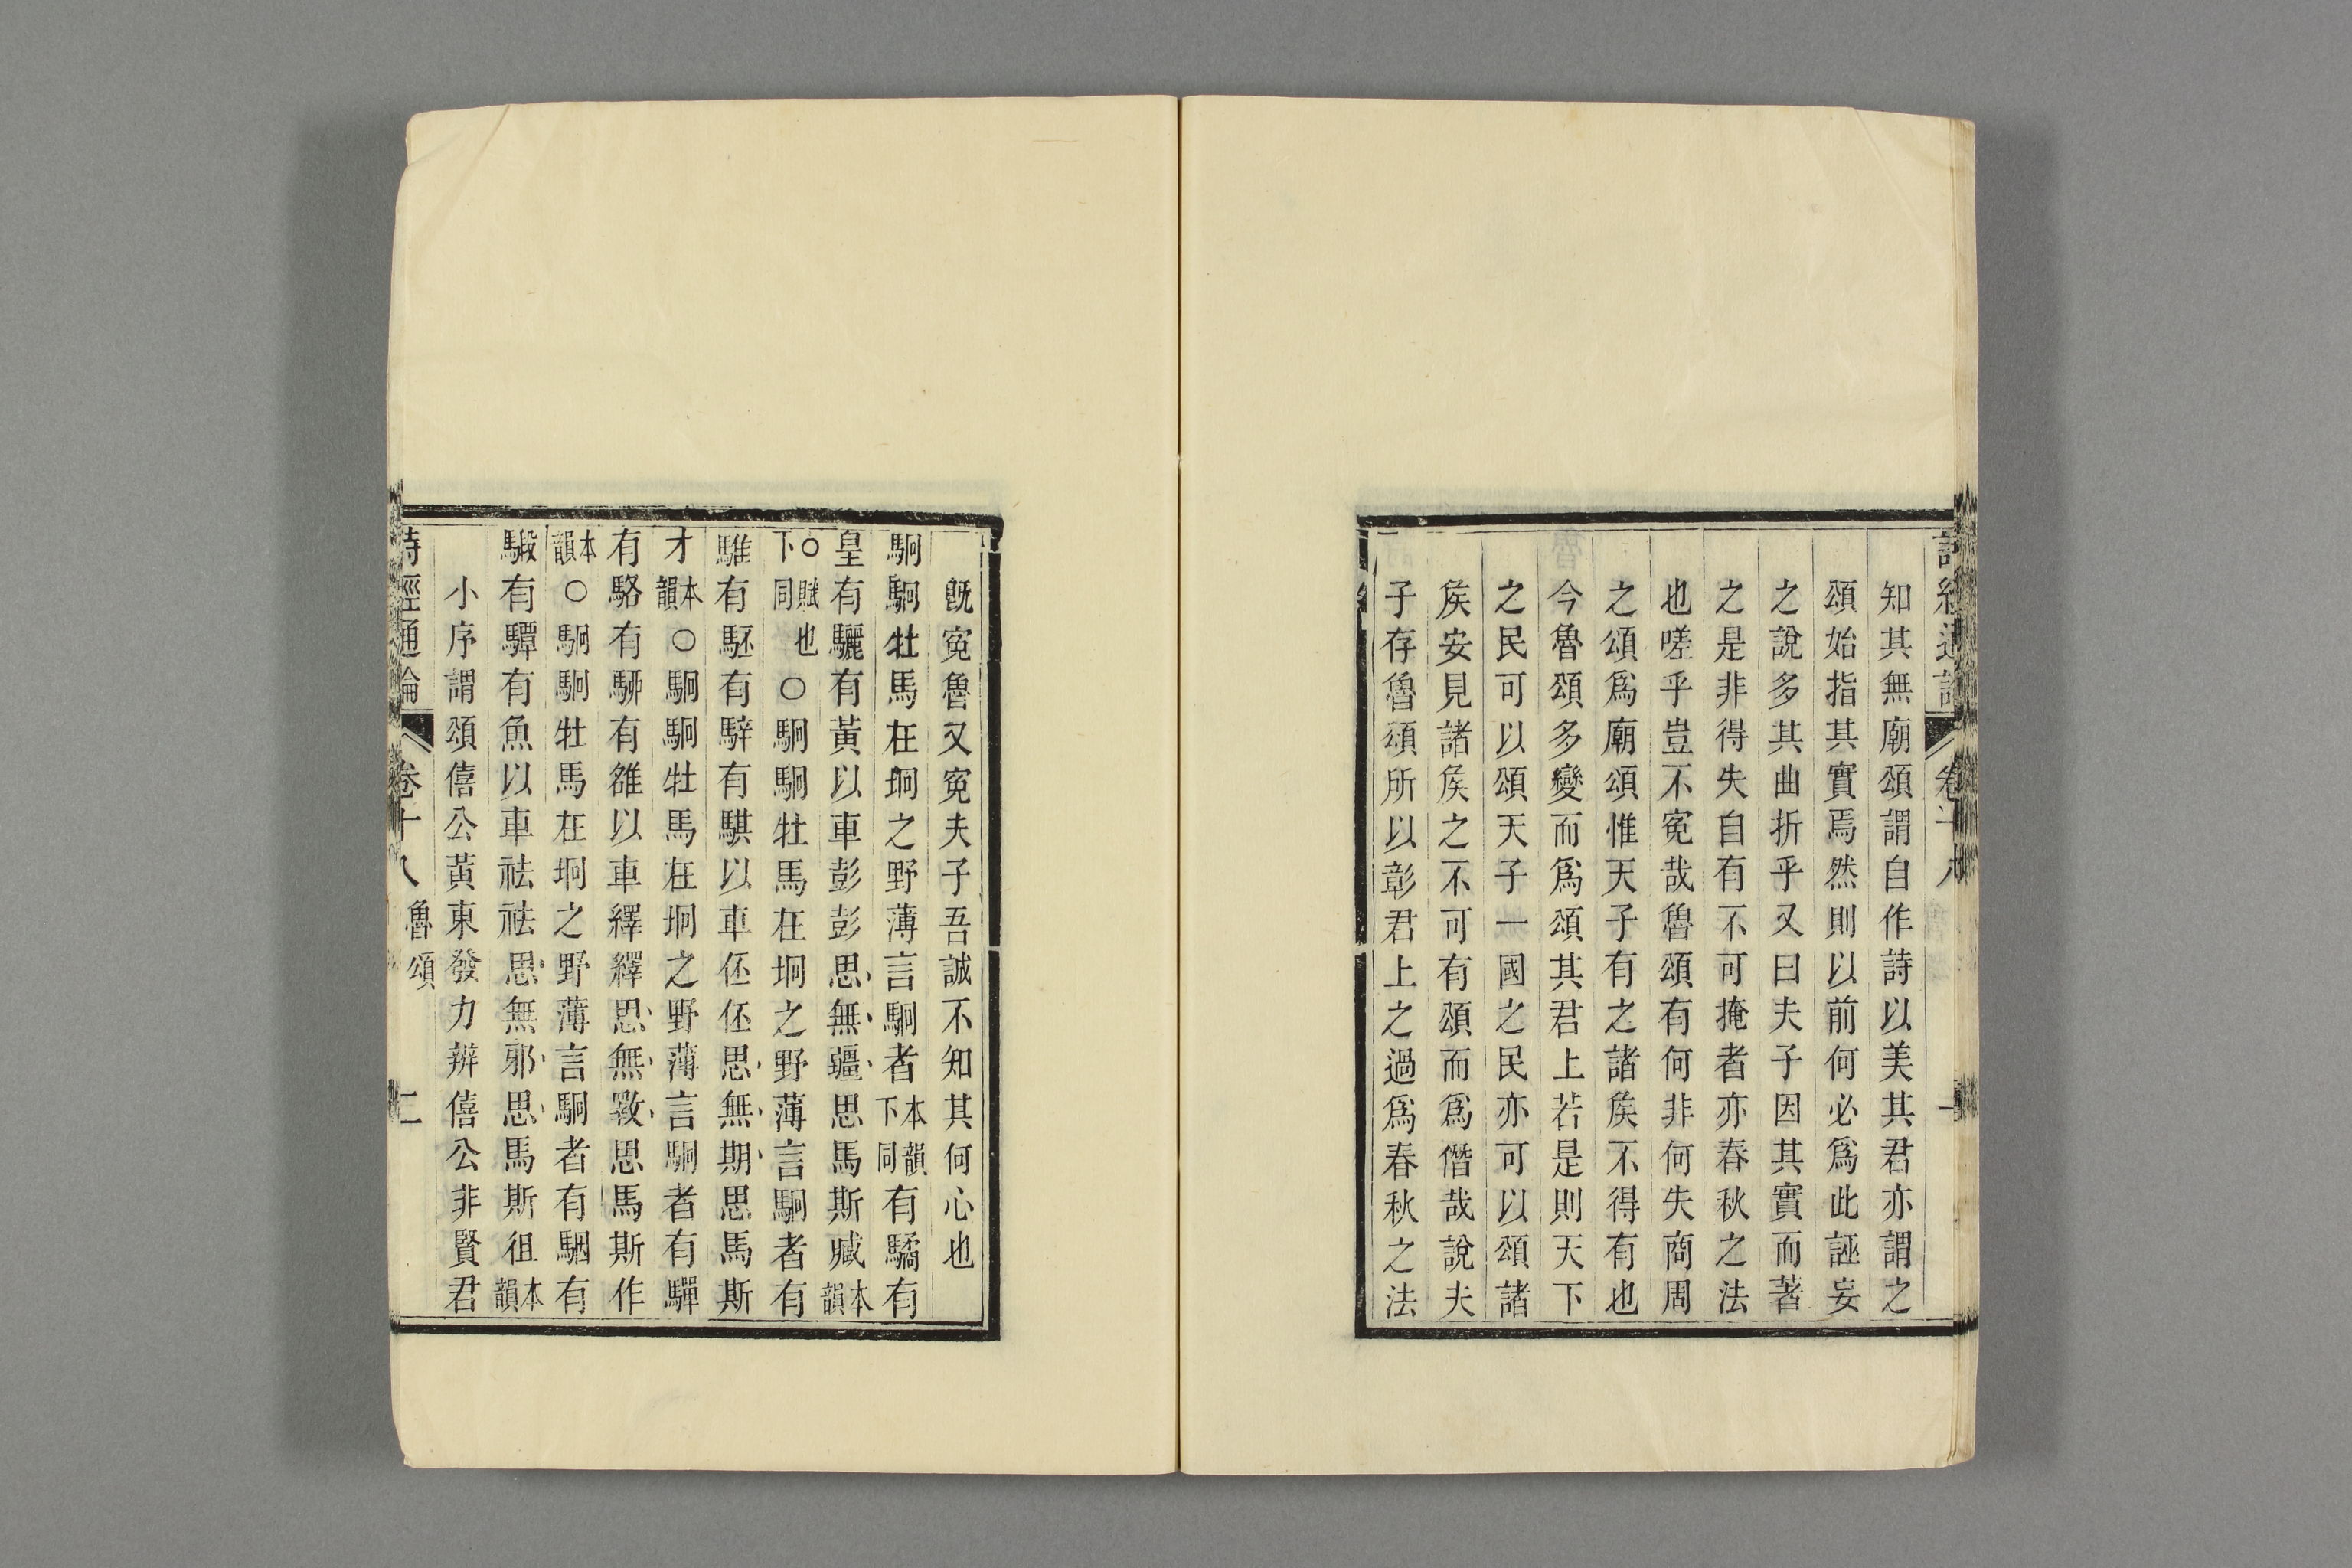 知其無廟頌謂自作詩以美其君亦謂之
頌始指其實焉然則以前何必爲此誣妄
之說多其曲折乎又曰夫子因其實而著
之是非得失自有不可掩者亦春秋之法
也嗟乎豈不寃哉魯頌有何非何失商周
之頌爲廟頌惟天子有之諸矦不得有也
今魯頌多變而爲頌其君上若是則天下
之民可以頌天子一國之民亦可以頌諸
矦安見諸矦之不可有頌而爲僭哉說夫
子存魯頌所以彰君上之過爲春秋之法
旣寃魯又寃夫子吾誠不知其何心也
駉駉牡馬在坰之野薄言駉者本韻下同有驈有
皇有驪有黃以車彭彭思無疆思馬斯臧本韻
○賦也下同○駉駉牡馬在坰之野薄言駉者有
騅有駓有騂有騏以車伾伾思無期思馬斯
才本韻○駉駉牡馬在坰之野薄言駉者有驒
有駱有駵有雒以車繹繹思無斁思馬斯作
本韻○駉駉牡馬在坰之野薄言駉者有駰有
騢有驔有魚以車祛祛思無邪思馬斯徂本韻
小序謂頌僖公黃東發力辨僖公非賢君
詩經通論 卷十八 魯頌 二